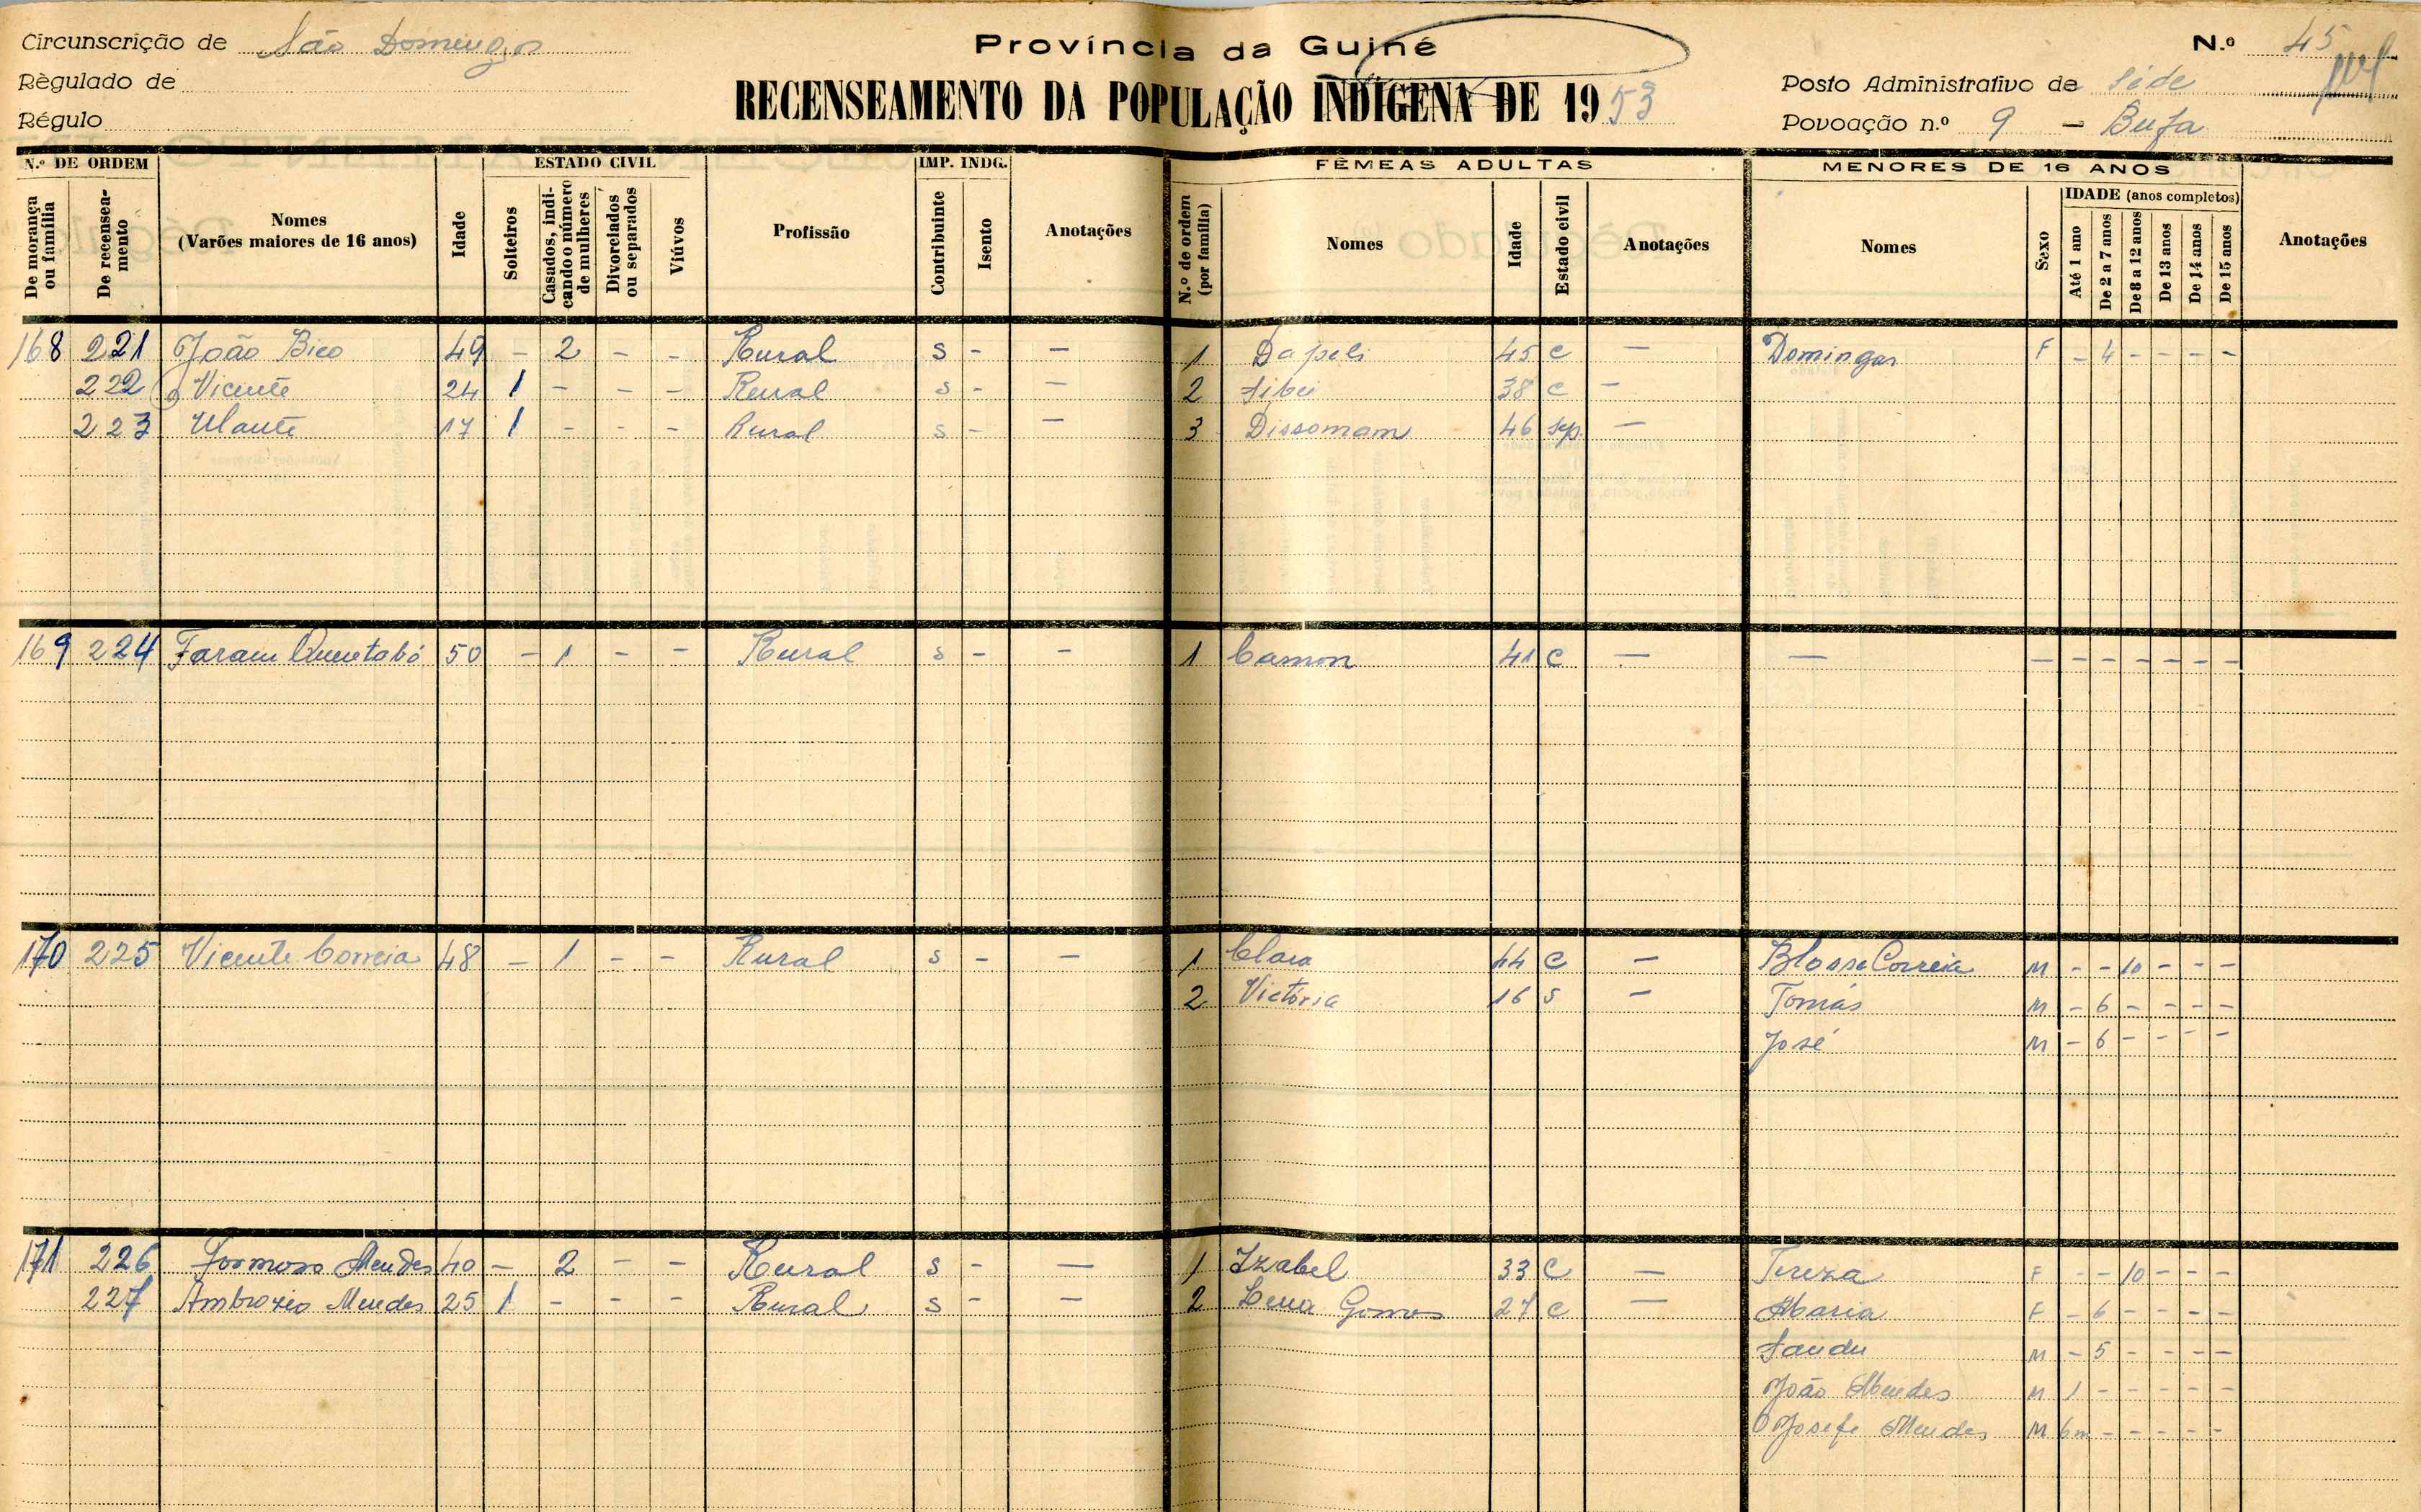 Circunscrição de São Domingos
Província da Guiné
N.º 45
Règulado de
RECENSEAMENTO DA POPULAÇÃO INDÍGENA DE 1953
Posto Administrativo de Sede
Régulo
Povoação n.º 9 — Bufa
N.º DE ORDEM
ESTADO CIVIL
IMP. INDG.
FÊMEAS ADULTAS
MENORES DE 16 ANOS
De morança ou família
De recenseamento
Nomes (Varões maiores de 16 anos)
Idade
Solteiros
Casados, indicando o número de mulheres
Divorciados ou separados
Viúvos
Profissão
Contribuinte
Isento
Anotações
N.º de ordem (por família)
Nomes
Idade
Estado civil
Anotações
Nomes
Sexo
IDADE (anos completos)
Até 1 ano
De 2 a 7 anos
De 8 a 12 anos
De 13 anos
De 14 anos
De 15 anos
Anotações
168 221 João Bico 49 - 2 - - Rural S - - 1 Dapeli 45 C - Domingas F - 4 - - - -
222 Vicente 24 1 - - - Rural S - - 2 38 C -
223 Ulante 17 1 - - - Rural S - - 3 Dissomam 46 sep. -
169 224 Faram Quentabó 50 - 1 - - Rural S - - 1 Camon 41 C - - - - - - - - -
170 225 Vicente Correia 48 - 1 - - Rural S - - 1 Clara 44 C - Blosse Correia M - - 10 - - -
2 Victória 16 S - Tomás M - 6 - - - -
José M - 6 - - - -
171 226 Formoso Mendes 40 - 2 - - Rural S - - 1 Izabel 33 C - Tereza F - - 10 - - -
227 Ambrozio Mendes 25 1 - - - Rural S - - 2 Lena Gomes 27 C - Maria F - 6 - - - -
Sandu M - 5 - - - -
João Mendes M 1 - - - - -
Josefe Mendes M 6m - - - - -